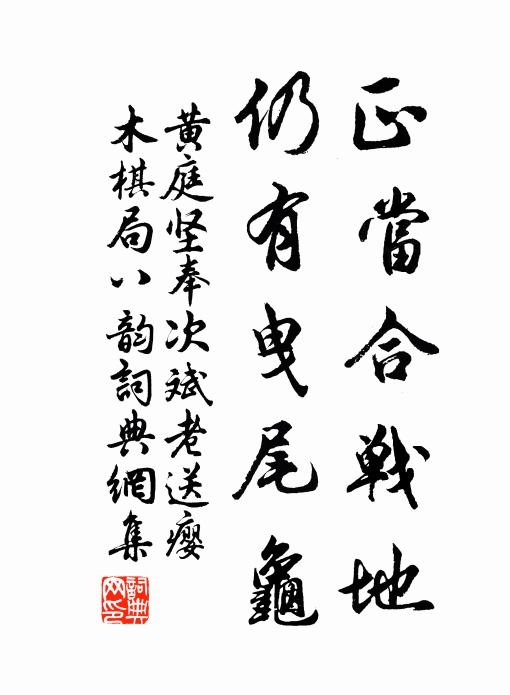 正當合戦地
仍有曳尾龜
黄庭坚奉次斌老送瘿
木棋局八韵詞典網集